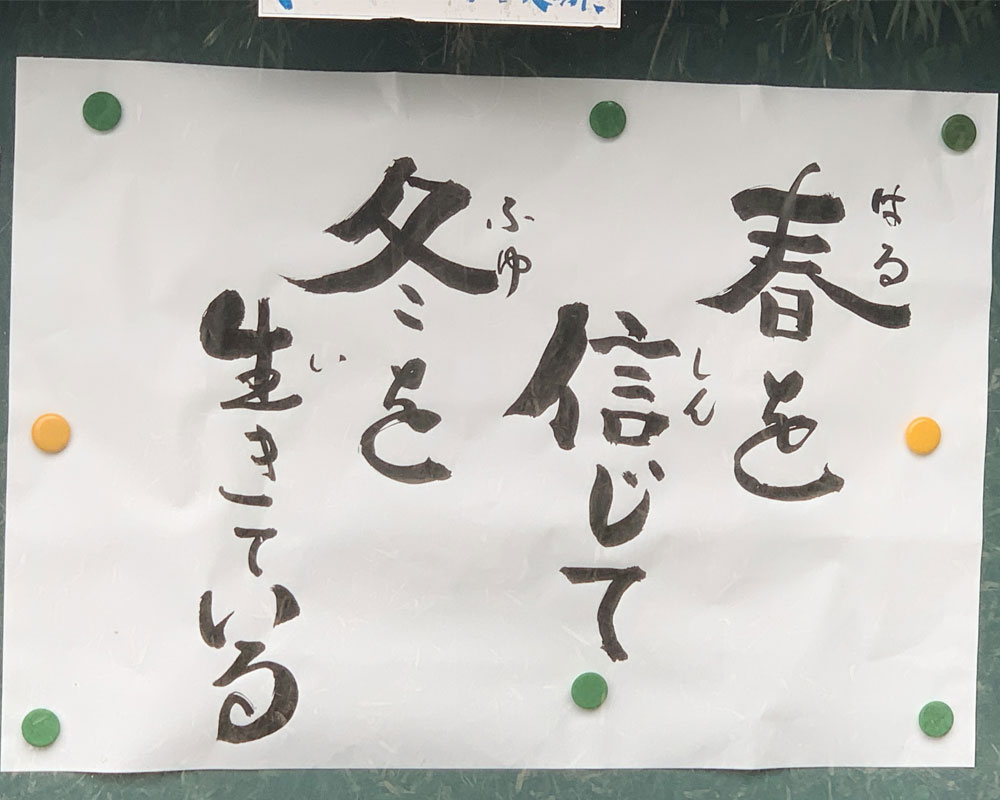 春を
はる
信じて
しん
冬を
ふゆ
生きている
い